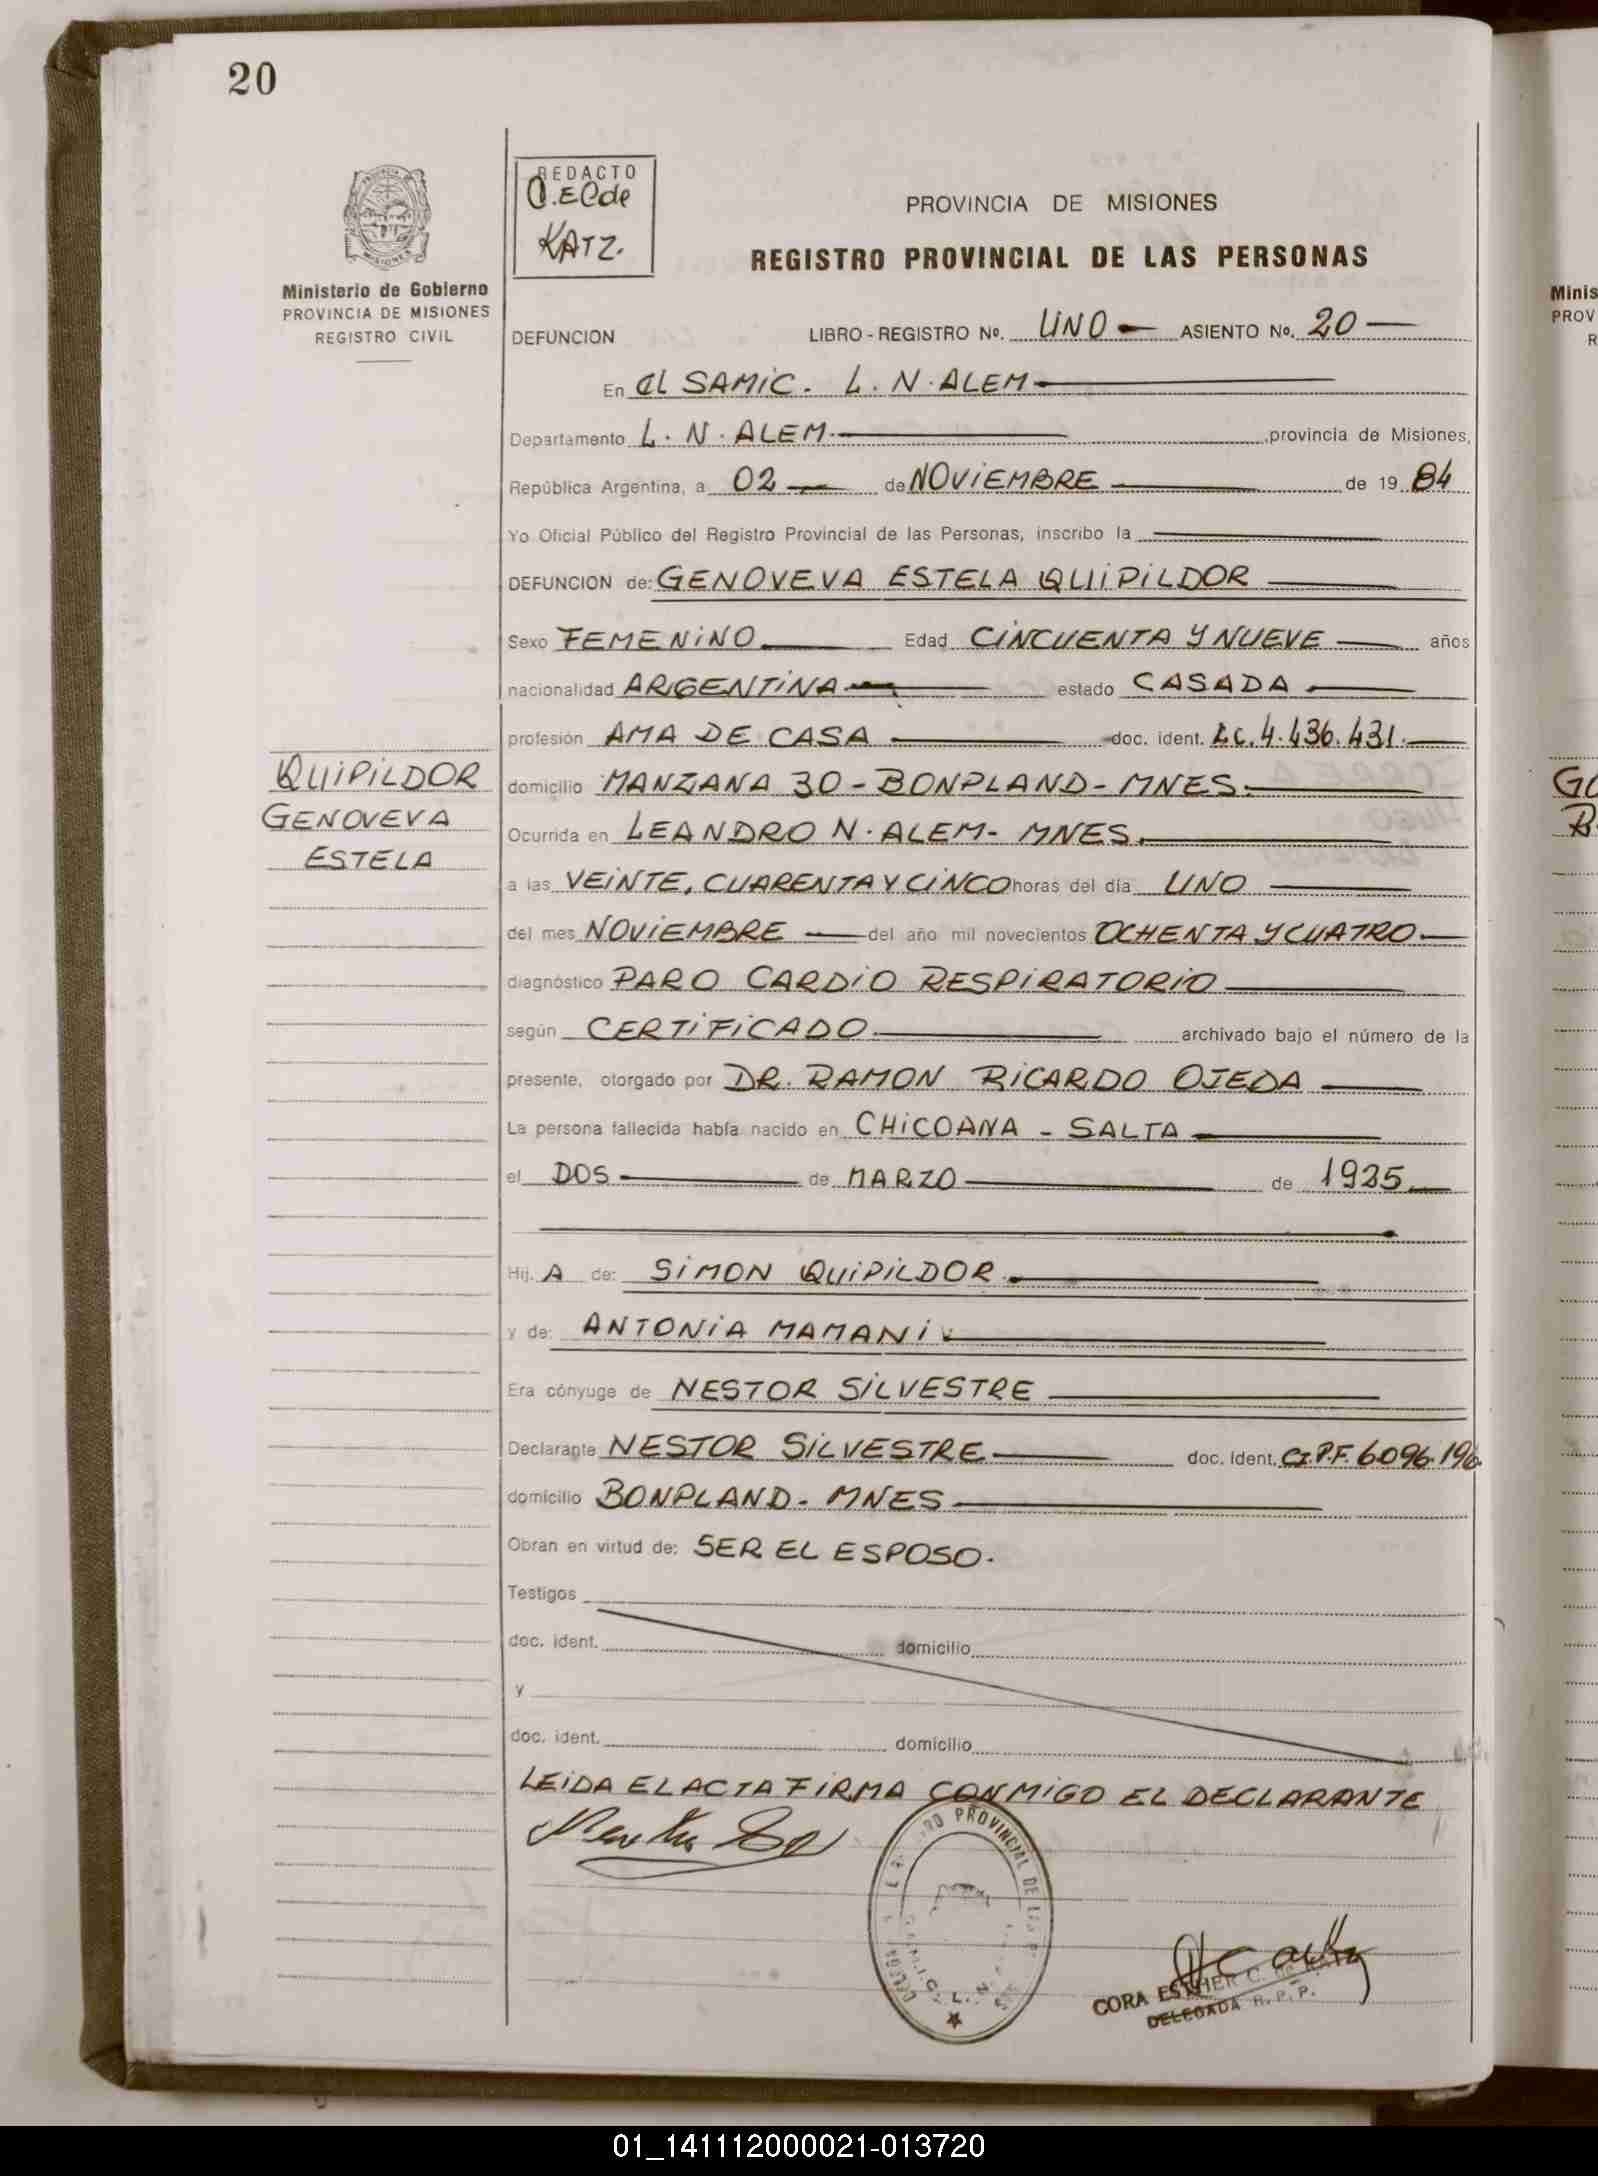 20
REDACTO
C.E.C de
KATZ.
PROVINCIA DE MISIONES
REGISTRO PROVINCIAL DE LAS PERSONAS
Ministerio de Gobierno
PROVINCIA DE MISIONES
REGISTRO CIVIL
DEFUNCION LIBRO - REGISTRO Nº. UNO ASIENTO Nº. 20
En el SAMIC. L. N. ALEM
Departamento L. N. ALEM. provincia de Misiones,
República Argentina, a 02 de NOVIEMBRE de 19 84
Yo Oficial Público del Registro Provincial de las Personas, inscribo la
DEFUNCION de: GENOVEVA ESTELA QUIPILDOR
Sexo FEMENINO Edad CINCUENTA Y NUEVE años
nacionalidad ARGENTINA estado CASADA
profesión AMA DE CASA doc. ident. LC. 4.436.431.
domicilio MANZANA 30 - BONPLAND - MNES.
Ocurrida en LEANDRO N. ALEM - MNES.
a las VEINTE, CUARENTA Y CINCO horas del día UNO
del mes NOVIEMBRE del año mil novecientos OCHENTA Y CUATRO
diagnóstico PARO CARDIO RESPIRATORIO
según CERTIFICADO archivado bajo el número de la
presente, otorgado por DR. RAMON RICARDO OJEDA
La persona fallecida había nacido en CHICOANA - SALTA
el DOS de MARZO de 1925
Hij. A de: SIMON QUIPILDOR.
y de: ANTONIA MAMANI.
Era cónyuge de NESTOR SILVESTRE
Declarante NESTOR SILVESTRE doc. ident. CI.P.F. 6096.196.
domicilio BONPLAND - MNES
Obran en virtud de: SER EL ESPOSO.
Testigos
doc. ident. domicilio
y
doc. ident. domicilio
LEIDA EL ACTA FIRMA CONMIGO EL DECLARANTE
QUIPILDOR
GENOVEVA
ESTELA
PROVINCIAL DE
CORA ESTHER C. de KATZ
DELEGADA R. P. P.
Minis
PROV
R
GO
01_141112000021-013720